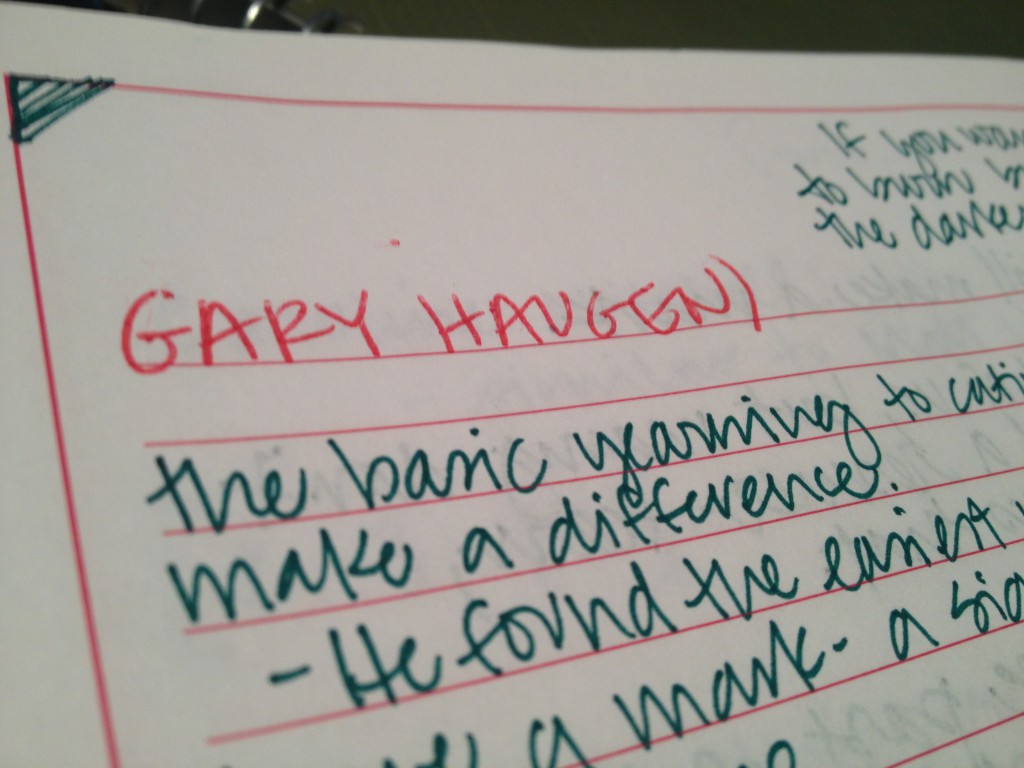 If you
to
the
GARY HAUGEN)
the basic yearning to
make a difference.
- He found the easiest
a mark - a